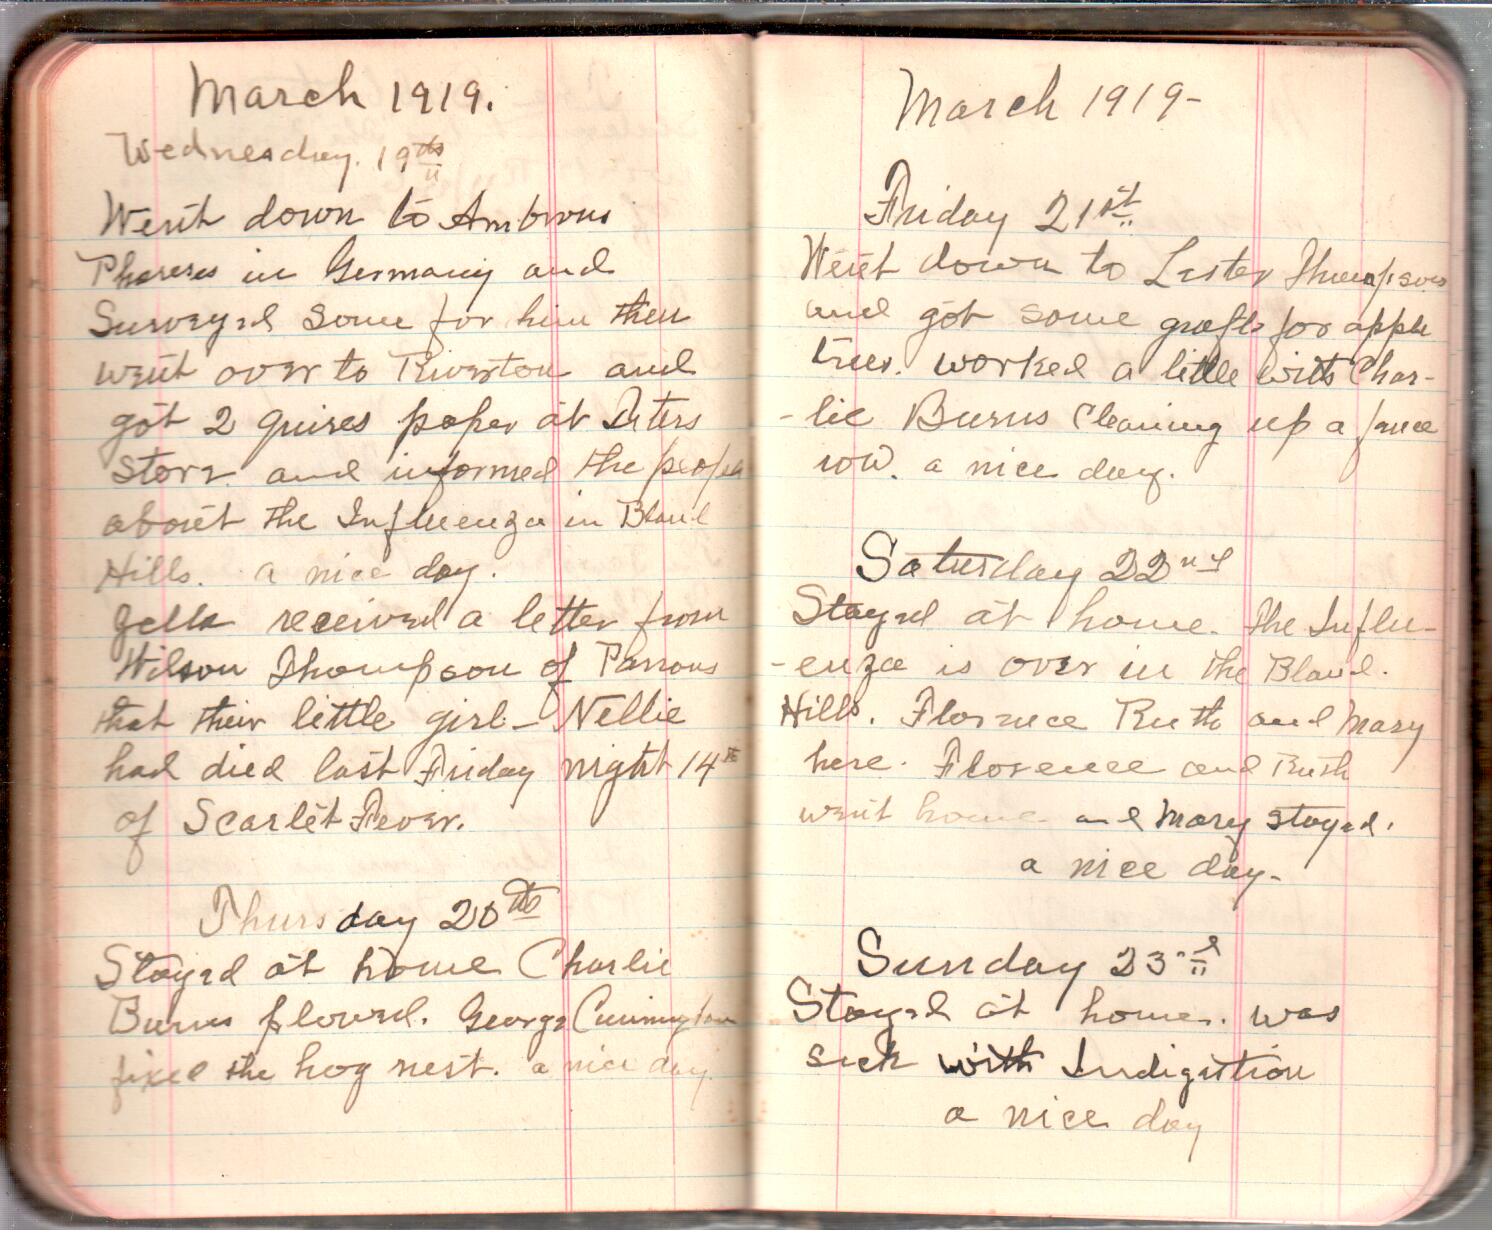 March 1919.
Wednesday. 19th
Went down to Ambrous
Phareses in Germany and
Surveyed some for him then
went over to Riverton and
got 2 quires paper at Dters
store and informed the people
about the Influenza in Bland
Hills. a nice day.
Zella received a letter from
Wilson Thompson of Parsons
that their little girl - Nellie
had died last Friday night 14th
of Scarlet Fever.
Thursday 20th
Stayed at home Charlie
Burns plowed. George Cunningham
fixed the hog nest. a nice day.
March 1919-
Friday 21st
Went down to Lester Thompsons
and got some grafts for apple
trees. worked a little with Char-
-lie Burns Cleaning up a fence
row. a nice day.
Saturday 22nd
Stayed at home. The Influ-
-enza is over in the Bland.
Hills. Florence Ruth and Mary
here. Florence and Ruth
went home and Mary stayed.
a nice day-
Sunday 23rd
Stayed at home. was
sick with Indigestion
a nice day